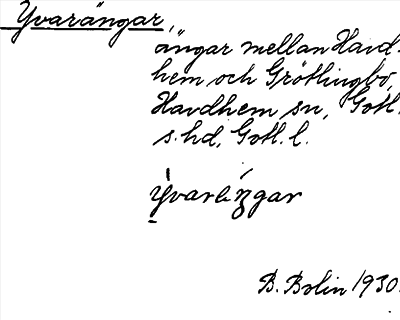 Yvarängar,
ängar mellan Havd-
hem och Grötlingbo,
Havdhem sn, Gotl.
s. hd, Gotl. l.
B. Bolin 1930.